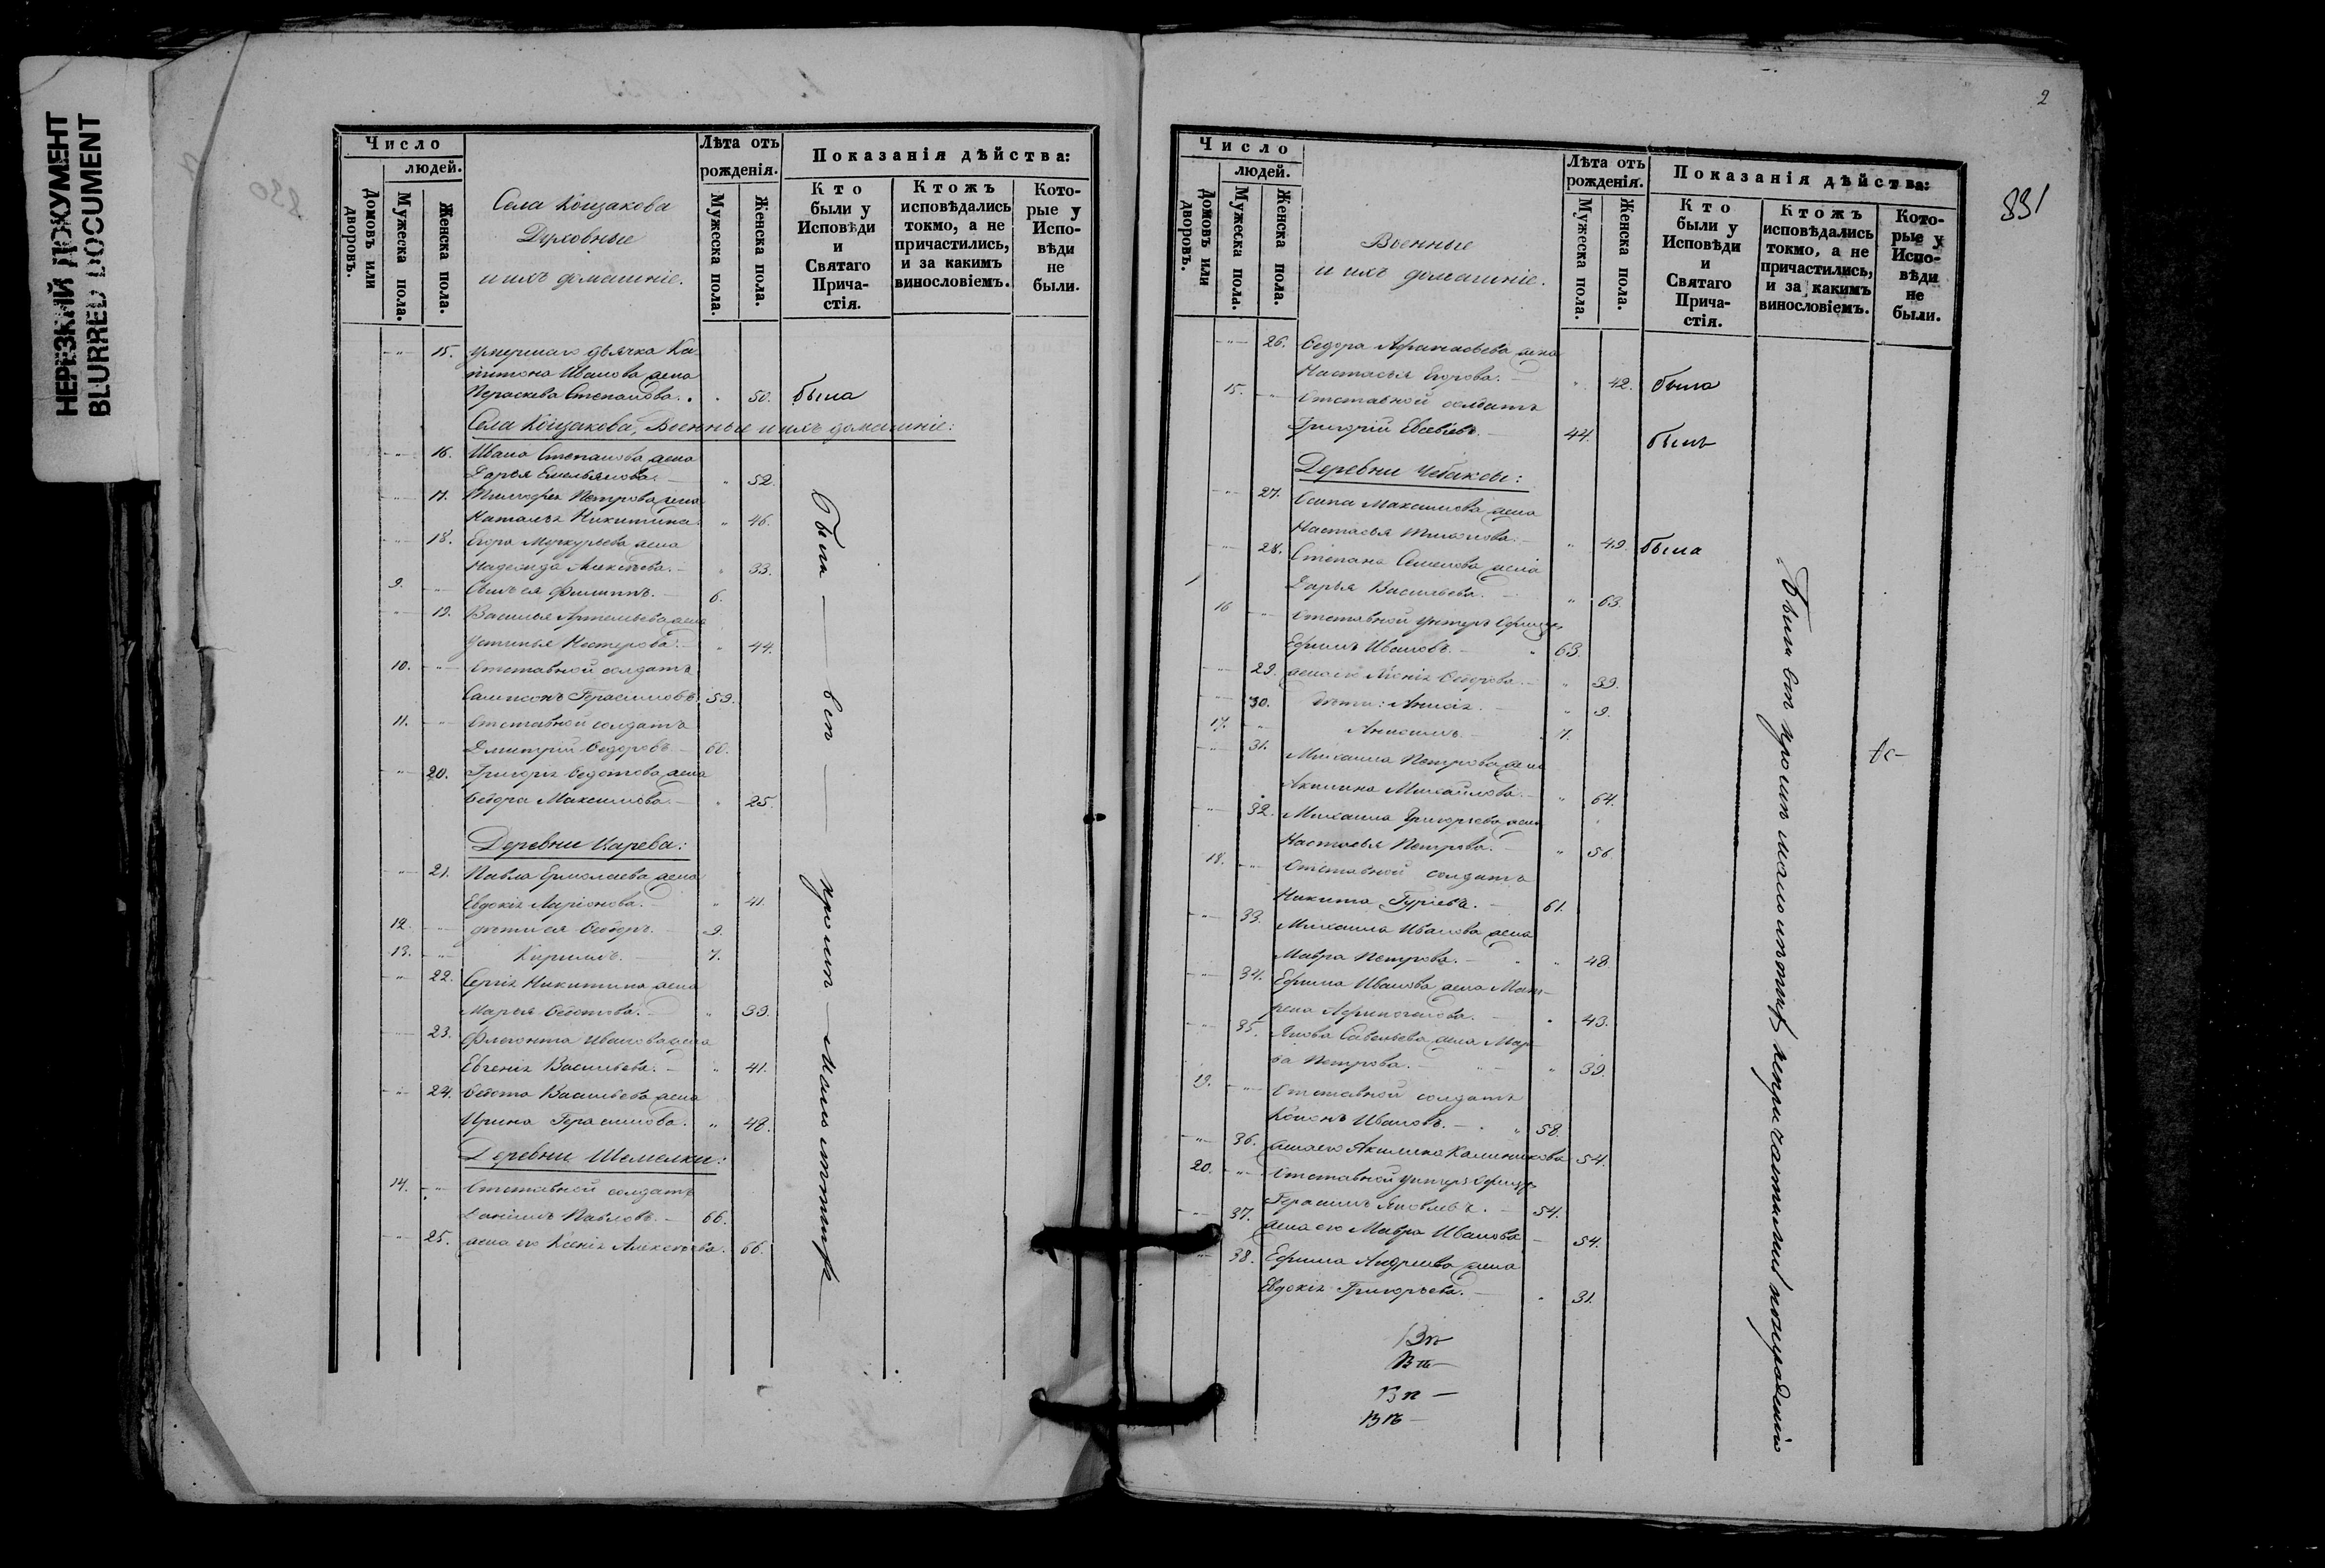 НЕРЕЗКИЙ ДОКУМЕНТ
BLURRED DOCUMENT
830
Число
людей.
Домовъ или дворовъ.
Мужеска пола.
Женска пола.
Села Кощакова
Духовные
и ихъ домашніе.
Лѣта отъ
рожденія.
Мужеска пола.
Женска пола.
Показанія дѣйства:
Кто
были у
Исповѣди
и
Святаго
Прича-
стія.
Ктожъ
исповѣдались
токмо, а не
причастились,
и за какимъ
винословіемъ.
Кото-
рые у
Испо-
вѣди
не
были.
15. умершаго дьячка Ка-
питона Иванова жена
Параскева Степанова. 50. была
Села Кощакова, Военные и ихъ домашніе:
16. Ивана Степанова жена
Дарья Емельянова. 52.
17. Тимофея Петрова жена
Наталья Никитина. 46.
18. Егора Меркурьева жена
Надежда Алексѣева. 33.
9. Сынъ ея Филиппъ. 6.
19. Василья Артемьева жена
Устинья Нестерова. 44.
10. Отставной солдатъ
Сампсонъ Герасимовъ. 59.
11. Отставной солдатъ
Дмитрій Ѳедоровъ. 60.
20. Григорія Ѳедотова жена
Ѳедора Максимова. 25.
Деревни Царева:
21. Павла Ермолаева жена
Евдокія Ларіонова. 41.
12. дѣти ея Ѳедоръ. 9.
13. Кирилъ. 7.
22. Сергія Никитина жена
Марья Ѳедотова. 39.
23. Флегонта Иванова жена
Евгенія Васильева. 41.
24. Ѳедота Васильева жена
Ирина Герасимова. 48.
Деревни Шемелки:
14. Отставной солдатъ
Даніилъ Павловъ. 66.
25. жена его Ксенія Алексѣева. 66.
Были всѣ кромѣ малолѣтнихъ
2
331
Число
людей.
Домовъ или дворовъ.
Мужеска пола.
Женска пола.
Военные
и ихъ домашніе.
Лѣта отъ
рожденія.
Мужеска пола.
Женска пола.
Показанія дѣйства:
Кто
были у
Исповѣди
и
Святаго
Прича-
стія.
Ктожъ
исповѣдались
токмо, а не
причастились,
и за какимъ
винословіемъ.
Кото-
рые у
Испо-
вѣди
не
были.
26. Ѳедора Афанасьева жена
Настасья Егорова. 42. была
15. Отставной солдатъ
Григорій Евсевіевъ. 44. былъ
Деревни Чебаксы:
27. Осипа Максимова жена
Настасья 49. была
28. Степана Семенова жена
Дарья Васильева. 63.
16 Отставной унтеръ офицеръ
Ефимъ Ивановъ. 63.
29. жена его Ѳедорова. 39.
30. дѣти: Анисія. 9.
17. Анисимъ. 7.
31. Михаила Петрова жена
Акилина Михайлова. 64.
32. Михаила Григорьева жена
Настасья Петрова. 56.
18. Отставной солдатъ
Никита Гуріевъ. 61.
33. Михаила Иванова жена
Мавра Петрова. 48.
34. Ефима Иванова жена Мат-
рена 43.
35. Якова Савельева жена Мар-
ѳа Петрова. 39.
19. Отставной солдатъ
Кононъ Ивановъ. 58.
36. жена его Акилина Калинникова 54.
20. Отставной унтеръ офицеръ
Герасимъ Яковлевъ. 54.
37. жена его Мавра Иванова 54.
38. Ефима Андреева жена
Евдокія Григорьева. 31.
Были всѣ кромѣ малолѣтнихъ